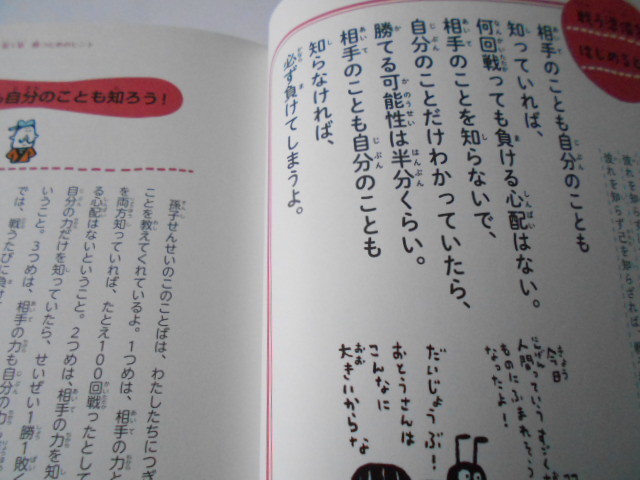 戦う
はじめる
相手のことも自分のことも
知っていれば、
何回戦っても負ける心配はない。
相手のことを知らないで、
自分のことだけわかっていたら、
勝てる可能性は半分くらい。
相手のことも自分のことも
知らなければ、
必ず負けてしまうよ。
今日
人間っていうすごく
ものにふまれそう
なったよ!
だいじょうぶ!
おとうさんは
こんなに
大きいからな
自分のことも知ろう!
孫子せんせいのこのことばは、わたしたちにつぎ
ことを教えてくれているよ。1つめは、相手の力と
を両方知っていれば、たとえ100回戦ったとして
る心配はないということ。2つめは、相手の力を知
自分の力だけを知っていたら、せいぜい1勝1敗く
いうこと。3つめは、相手の力も自分の力
では、戦うたびに負け